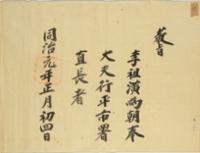 敎旨
李祖爲朝奉
大夫行平市署
直長者
同治元年正月初四日